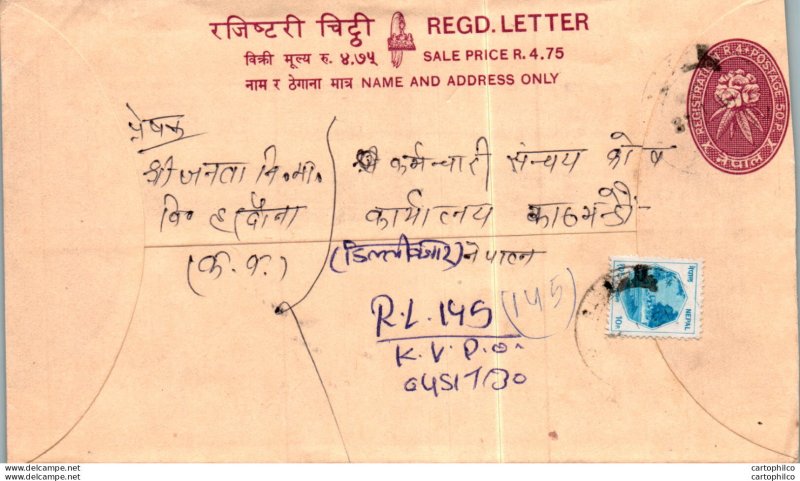 रजिष्टरी चिट्ठी REGD. LETTER
बिक्री मूल्य रु. ४.७५ SALE PRICE R. 4.75
नाम र ठेगाना मात्र NAME AND ADDRESS ONLY
REGISTRATION R.4 POSTAGE 50P.
नेपाल
प्रेषक
श्री जनता नि॰मा॰
वि॰
(क.व.)
श्री कर्मचारी संचय कोष
कार्यालय काठमाडौं
(डिल्लीबजार) नेपाल
R.L. 145 (145)
K.V.P.O.
नेपाल
NEPAL
10P.
www.delcampe.net
cartophilco
cartophilco